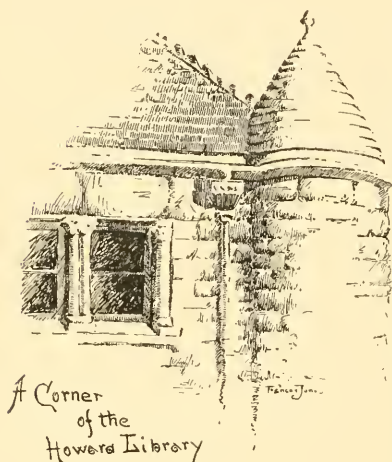 Frances Jones
A Corner
of the
Howard Library